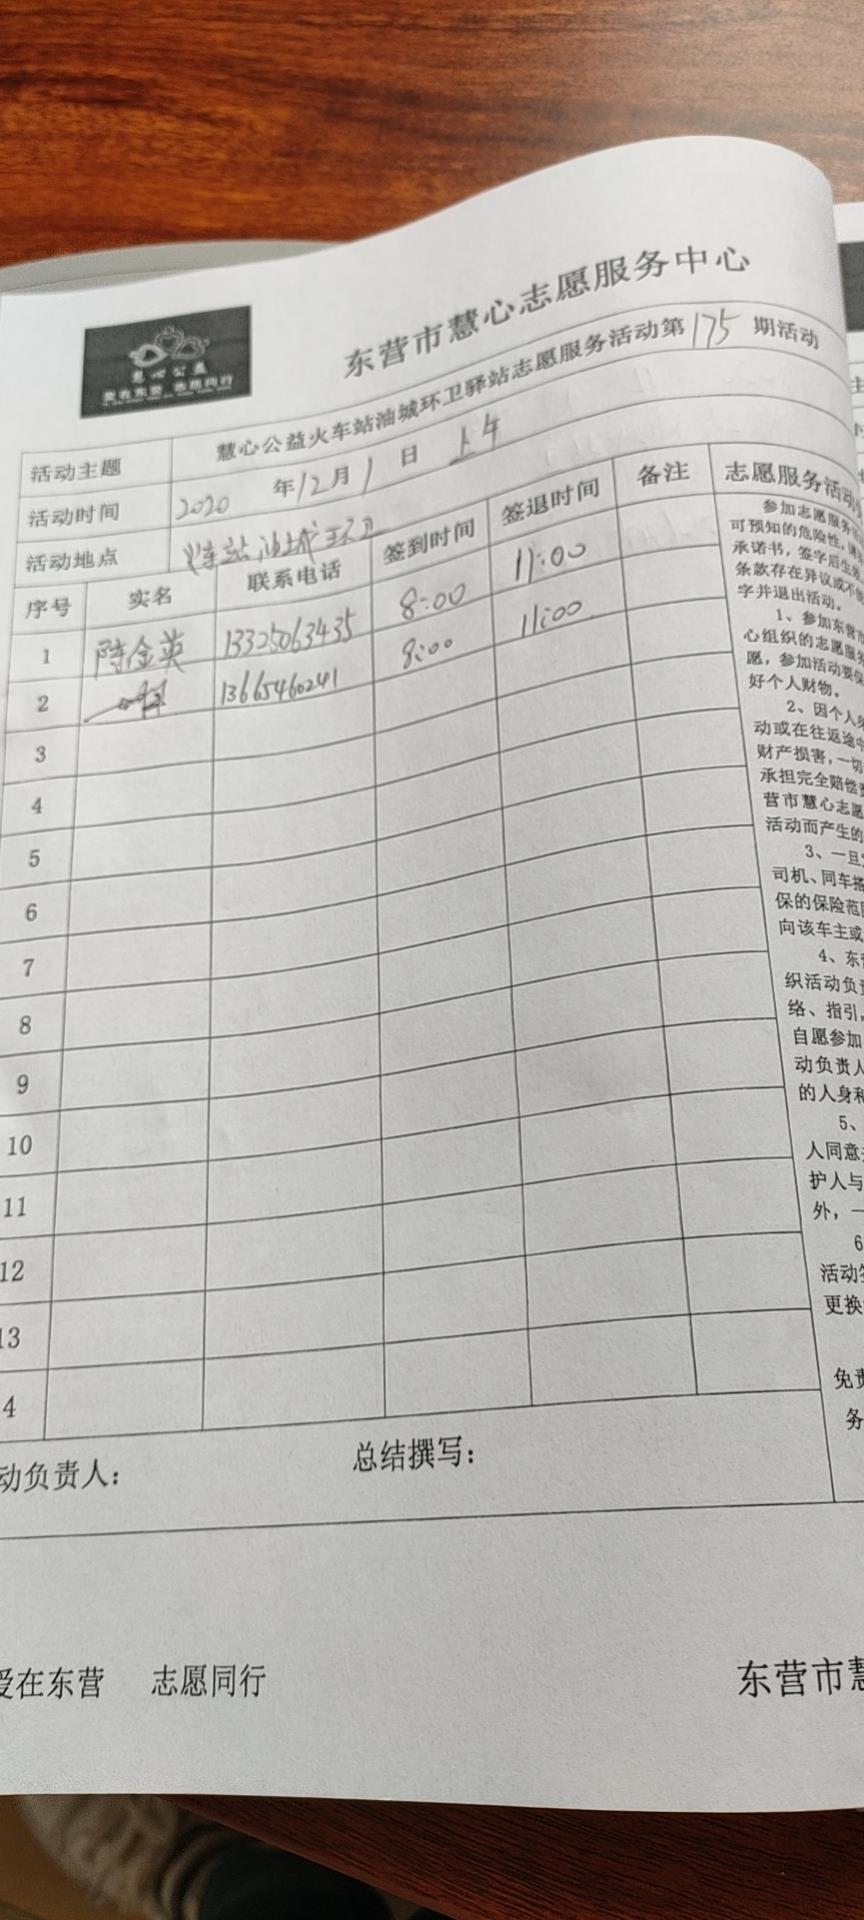 慧心公益
爱在东营 志愿同行
东营市慧心志愿服务中心
活动主题 慧心公益火车站油城环卫驿站志愿服务活动第175期活动
活动时间 2020年12月1日 上午
活动地点 火车站油城环卫
序号 实名 联系电话 签到时间 签退时间 备注
1 陈金英 13325063435 8:00 11:00
2 13665460241 8:00 11:00
3
4
5
6
7
8
9
10
11
12
13
4
动负责人： 总结撰写：
志愿服务活动
参加志愿服务
可预知的危险性，
承诺书，签字后生
条款存在异议或不
字并退出活动。
1、参加东营市
心组织的志愿服务
愿，参加活动要保
好个人财物。
2、因个人
动或在往返途中
财产损害，一切
承担完全赔偿
营市慧心志愿
活动而产生的
3、一旦
司机、同车搭
保的保险范
向该车主或
4、东
织活动负责
络、指引，
自愿参加
动负责人
的人身和
5、
人同意
护人与
外，一
6
活动
更换
免责
务
爱在东营 志愿同行
东营市慧